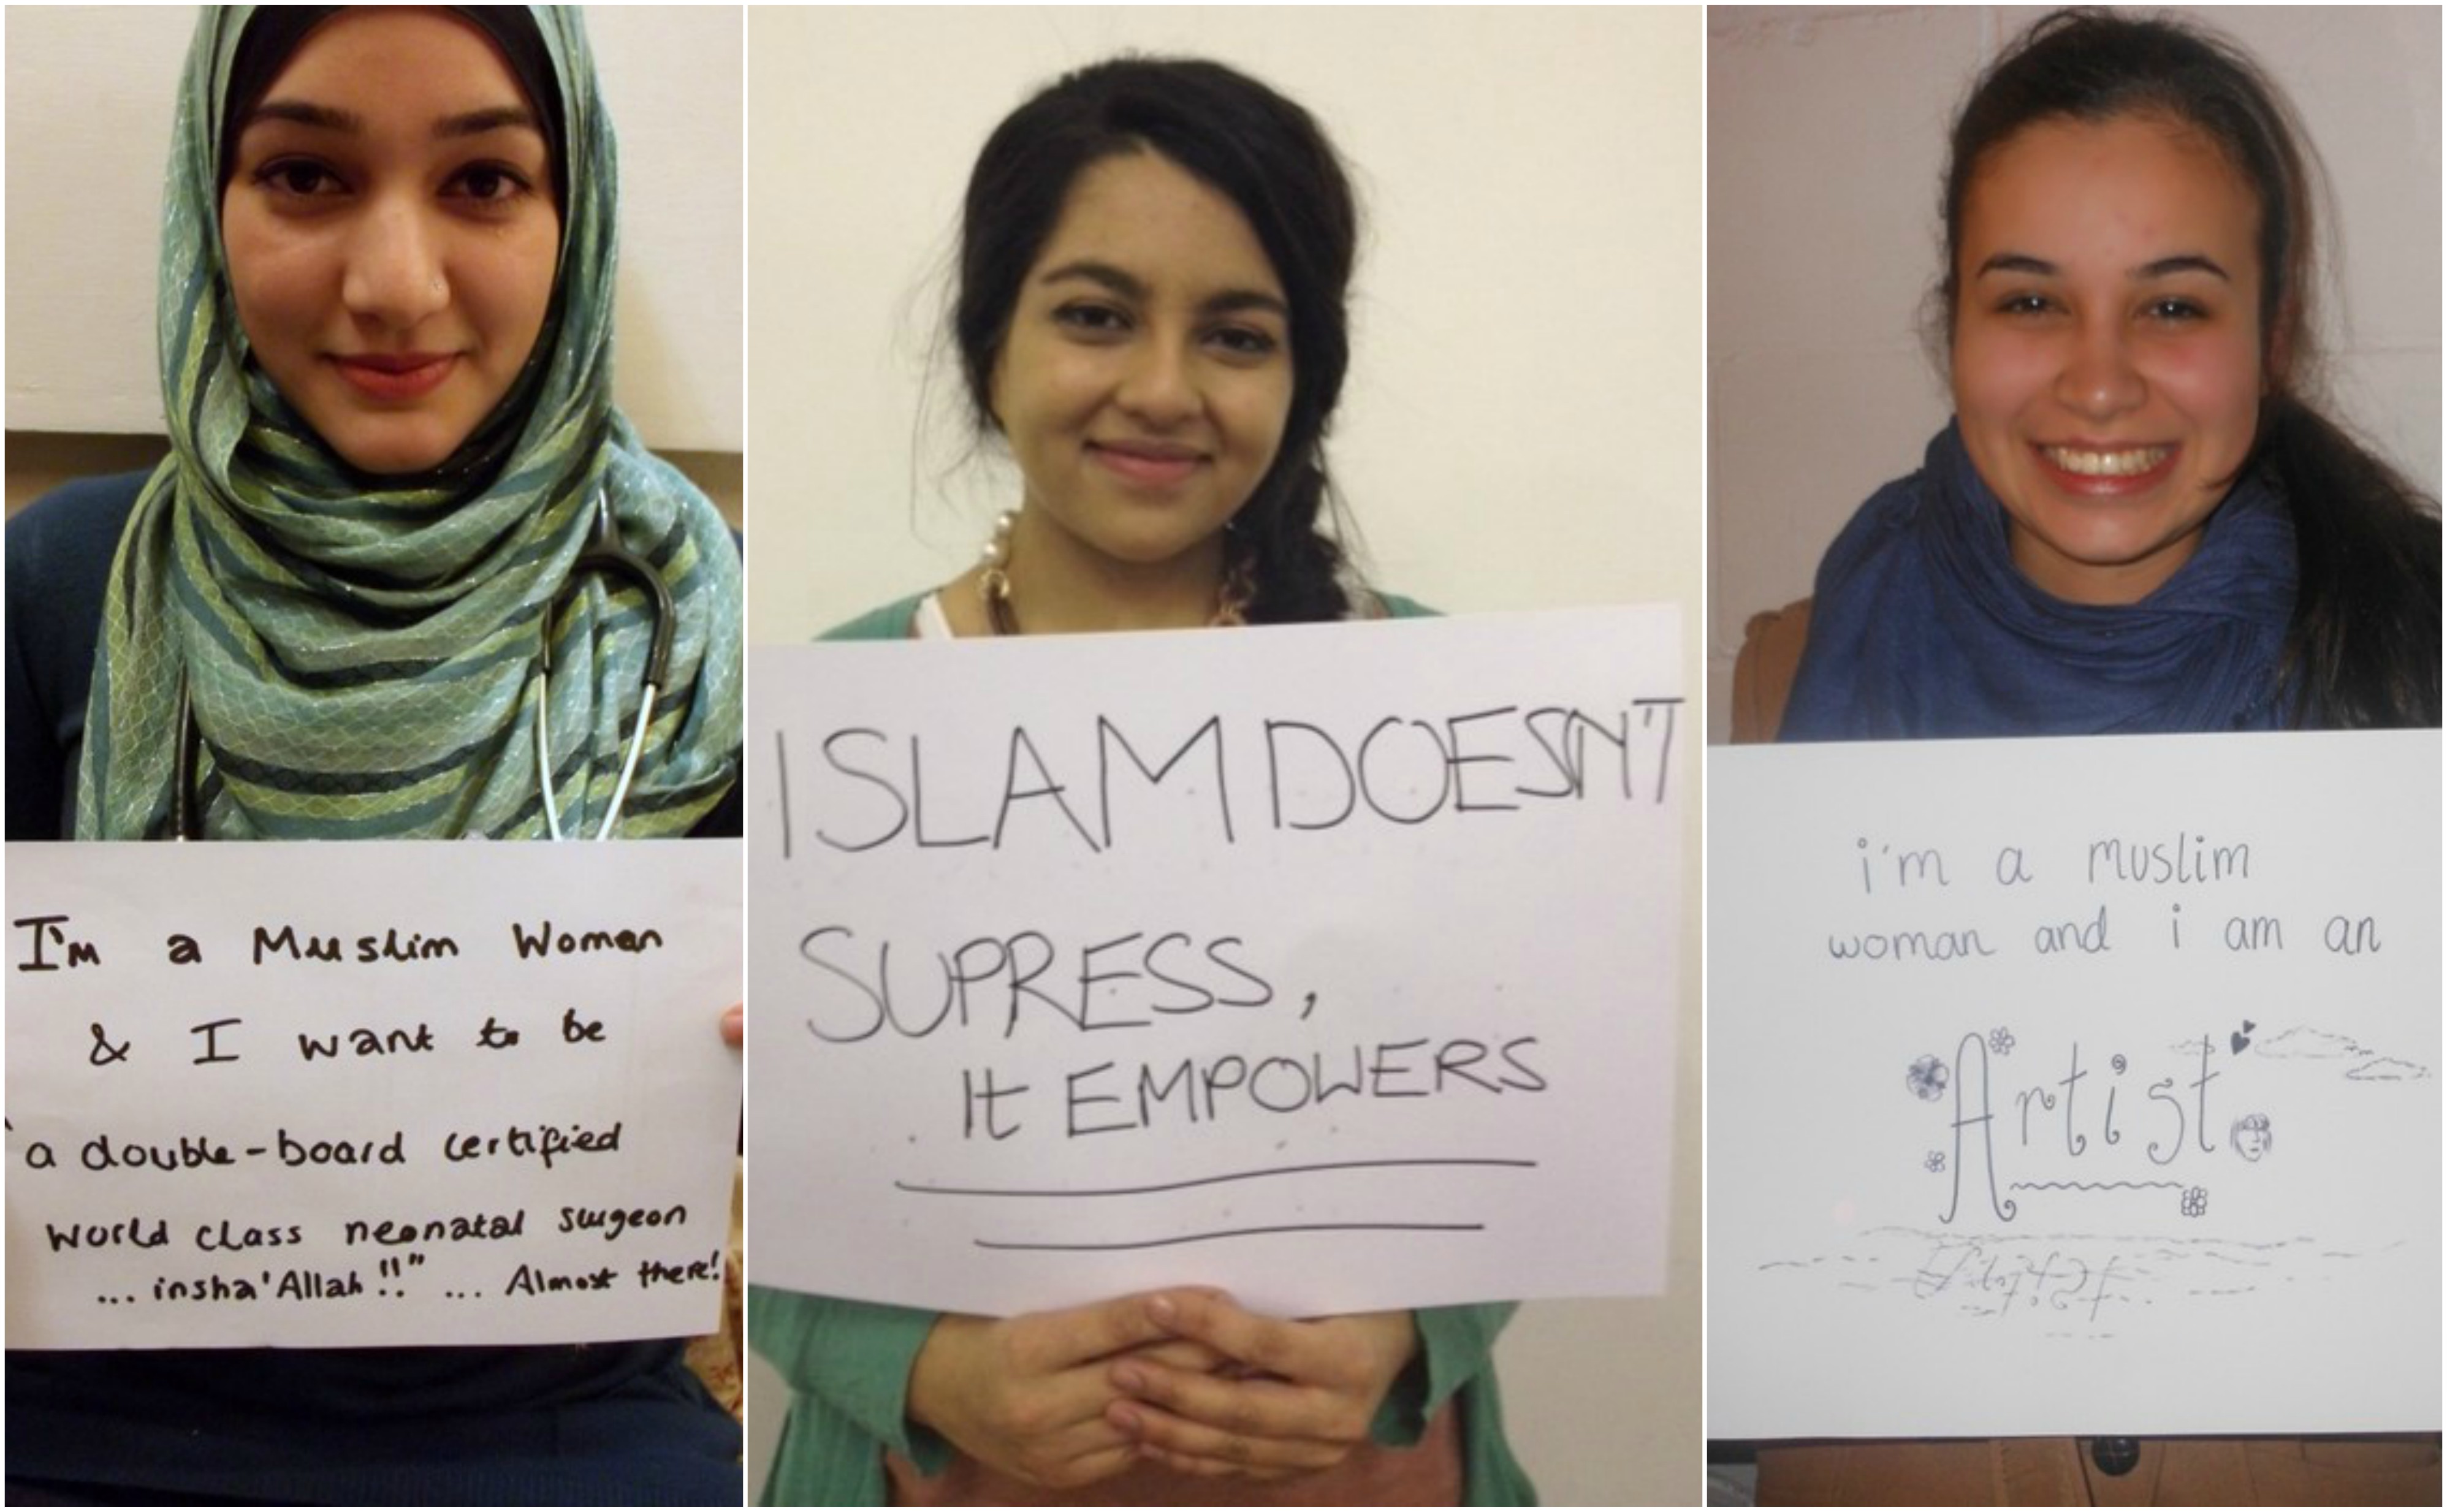 I'm a Muslim Woman
& I want to be
a double-board certified
world class neonatal surgeon
... insha'Allah !!" ... Almost there!
ISLAM DOESN'T
SUPRESS,
It EMPOWERS
i'm a muslim
woman and i am an
Artist